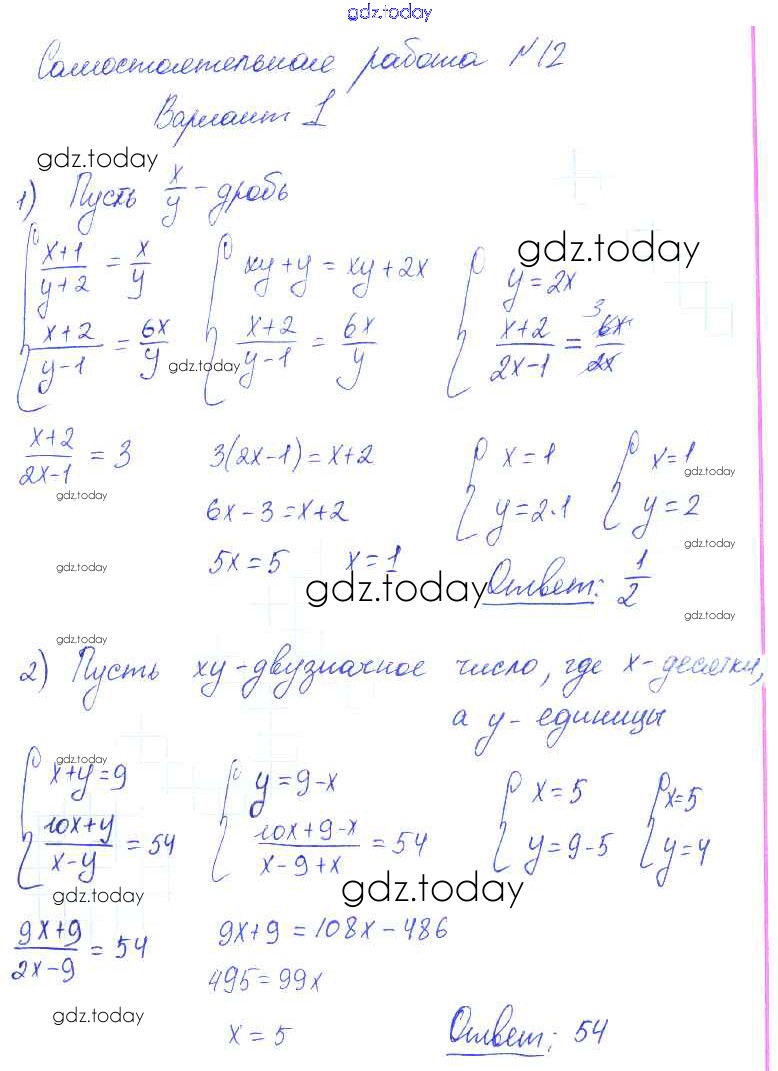 gdz.today
Самостоятельная работа №12
Вариант 1
gdz.today
1) Пусть x/y - дробь
gdz.today
{ (x+1)/(y+2) = x/y { xy+y = xy+2x { y=2x
(x+2)/(y-1) = 6x/y (x+2)/(y-1) = 6x/y (x+2)/(2x-1) = 6x/2x 3
gdz.today
(x+2)/(2x-1) = 3 3(2x-1)=x+2 { x=1 { x=1
gdz.today
gdz.today
6x-3=x+2 y=2·1 y=2
gdz.today
gdz.today
5x=5 x=1
gdz.today
Ответ: 1/2
gdz.today
gdz.today
2) Пусть xy - двузначное число, где x - десятки,
а y - единицы
gdz.today
{ x+y=9 { y=9-x { x=5 { x=5
(10x+y)/(x-y) = 54 (10x+9-x)/(x-9+x) = 54 y=9-5 y=4
gdz.today
gdz.today
(9x+9)/(2x-9) = 54 9x+9=108x-486
495=99x
gdz.today
x=5 Ответ: 54